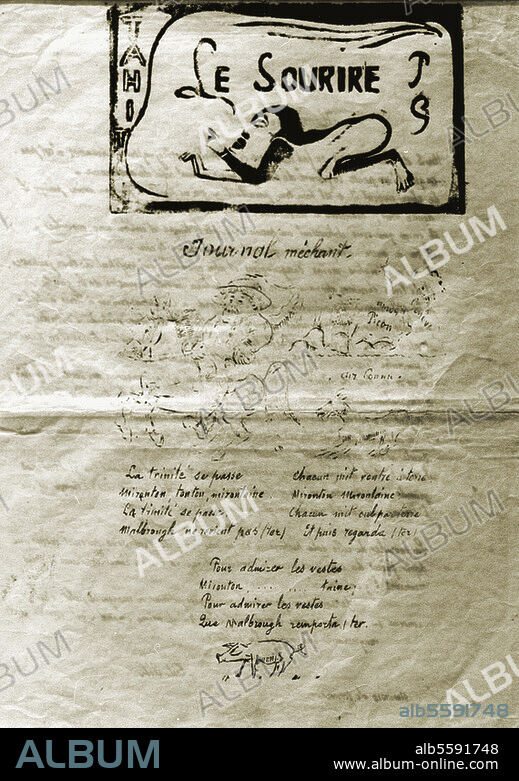 TAHI
LE SOURIRE
Journal méchant.
Picon
air Connu.
La trinité se passe
Mironton, tonton, mirontaine
La trinité se passe
Malbrough ne revient pas (ter)
Chacun mit ventre à terre
Mironton Mirontaine
Chacun mit cul par terre
Et puis regarda (ter)
Pour admirer les vestes
Mironton, ..... taine;
Pour admirer les vestes
Que Malbrough remporta (ter.
alb5591748
ALBUM
alb5591748
www.album-online.com